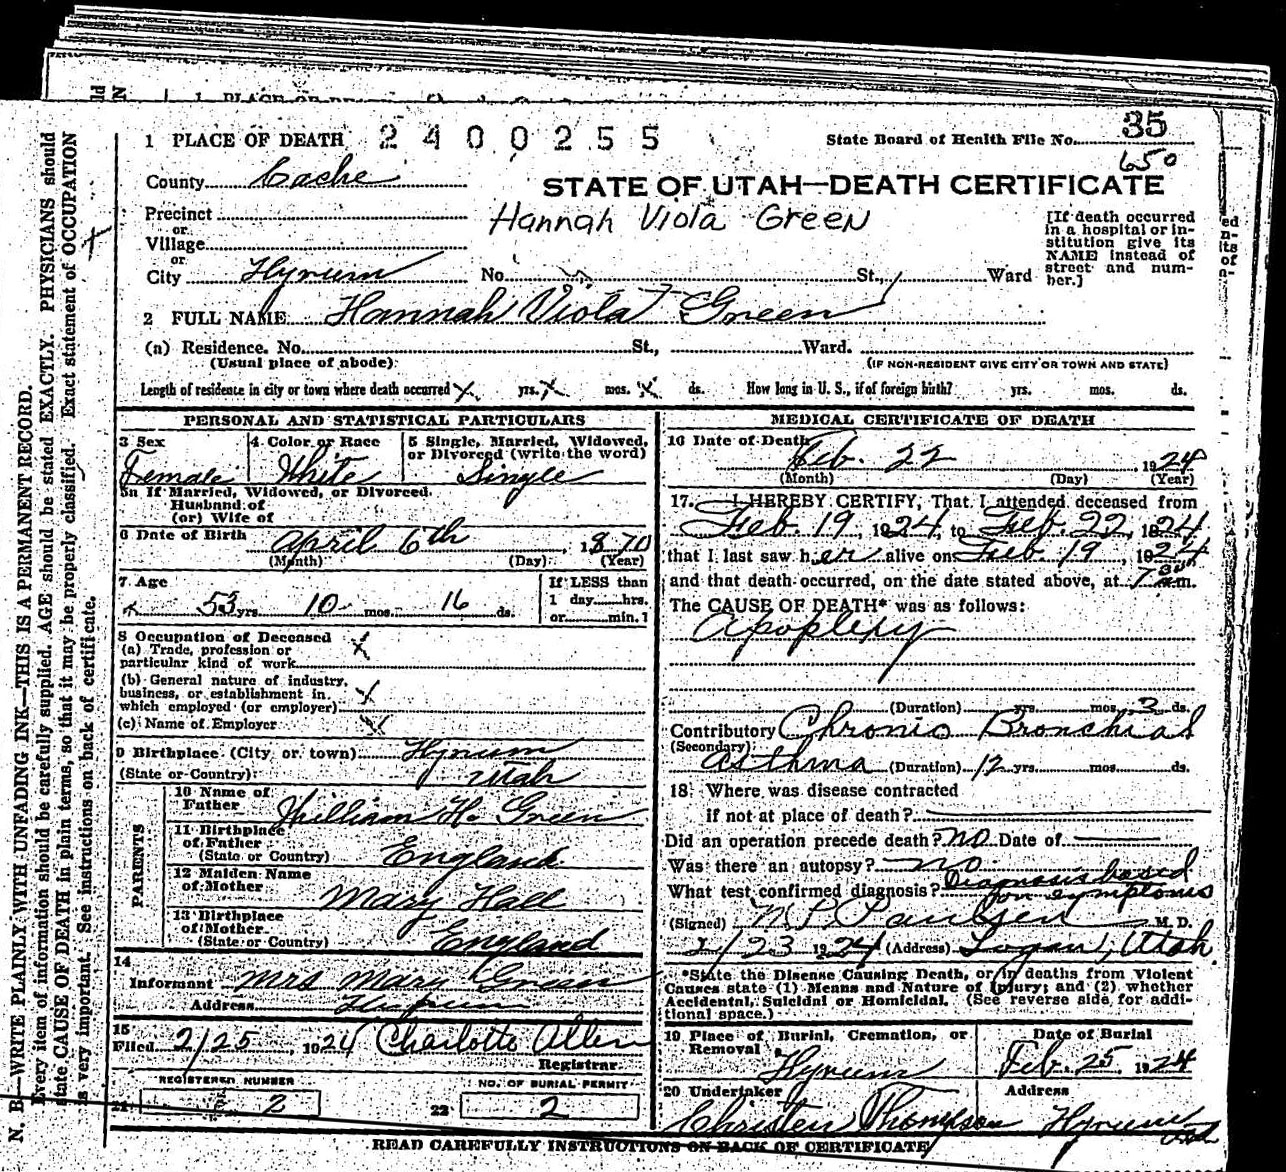 1 PLACE OF DEATH 2400255
State Board of Health File No. 35
650
County Cache
STATE OF UTAH—DEATH CERTIFICATE
Precinct
or
Village
or
City Hyrum No. St., Ward
Hannah Viola Green
[If death occurred
in a hospital or in-
stitution give its
NAME instead of
street and num-
ber.]
2 FULL NAME Hannah Viola Green
(a) Residence. No. St., Ward.
(Usual place of abode) (IF NON-RESIDENT GIVE CITY OR TOWN AND STATE)
Length of residence in city or town where death occurred X yrs. X mos. X ds. How long in U. S., if of foreign birth? yrs. mos. ds.
PERSONAL AND STATISTICAL PARTICULARS
3 Sex
Female
4 Color or Race
White
5 Single, Married, Widowed,
or Divorced (write the word)
Single
5a If Married, Widowed, or Divorced.
Husband of
(or) Wife of
6 Date of Birth April 6th, 1870
(Month) (Day) (Year)
7 Age
53 yrs. 10 mos. 16 ds.
If LESS than
1 day hrs.
or min.
8 Occupation of Deceased
(a) Trade, profession or
particular kind of work X
(b) General nature of industry,
business, or establishment in
which employed (or employer) X
(c) Name of Employer X
9 Birthplace (City or town) Hyrum
(State or Country) Utah
PARENTS
10 Name of
Father William H. Green
11 Birthplace
of Father
(State or Country) England
12 Maiden Name
of Mother Mary Hall
13 Birthplace
of Mother
(State or Country) England
14
Informant Mrs Mary Green
Address Hyrum
15
Filed 2/25, 1924 Charlotte Allen
Registrar.
REGISTERED NUMBER
21 2
NO. OF BURIAL PERMIT
22 2
MEDICAL CERTIFICATE OF DEATH
16 Date of Death
Feb. 22, 1924
(Month) (Day) (Year)
17. I HEREBY CERTIFY, That I attended deceased from
Feb. 19, 1924, to Feb. 22, 1924
that I last saw her alive on Feb 19, 1924
and that death occurred, on the date stated above, at 7 30 a.m.
The CAUSE OF DEATH* was as follows:
Apoplexy
(Duration) yrs. mos. 3 ds.
Contributory Chronic Bronchial
(Secondary)
Asthma (Duration) 12 yrs. mos. ds.
18. Where was disease contracted
if not at place of death?
Did an operation precede death? no Date of
Was there an autopsy? no
What test confirmed diagnosis? Diagnosis based
on symptoms
(Signed) Paulsen M. D.
2/23 1924 (Address) Logan, Utah.
*State the Disease Causing Death, or in deaths from Violent
Causes state (1) Means and Nature of Injury; and (2) whether
Accidental, Suicidal or Homicidal. (See reverse side for addi-
tional space.)
19 Place of Burial, Cremation, or
Removal
Hyrum
Date of Burial
Feb. 25 1924
20 Undertaker
Christen Thompson
Address
Hyrum
Utah
READ CAREFULLY INSTRUCTIONS ON BACK OF CERTIFICATE
N. B—WRITE PLAINLY WITH UNFADING INK—THIS IS A PERMANENT RECORD.
Every item of information should be carefully supplied. AGE should be stated EXACTLY. PHYSICIANS should
state CAUSE OF DEATH in plain terms, so that it may be properly classified. Exact statement of OCCUPATION
is very important. See instructions on back of certificate.